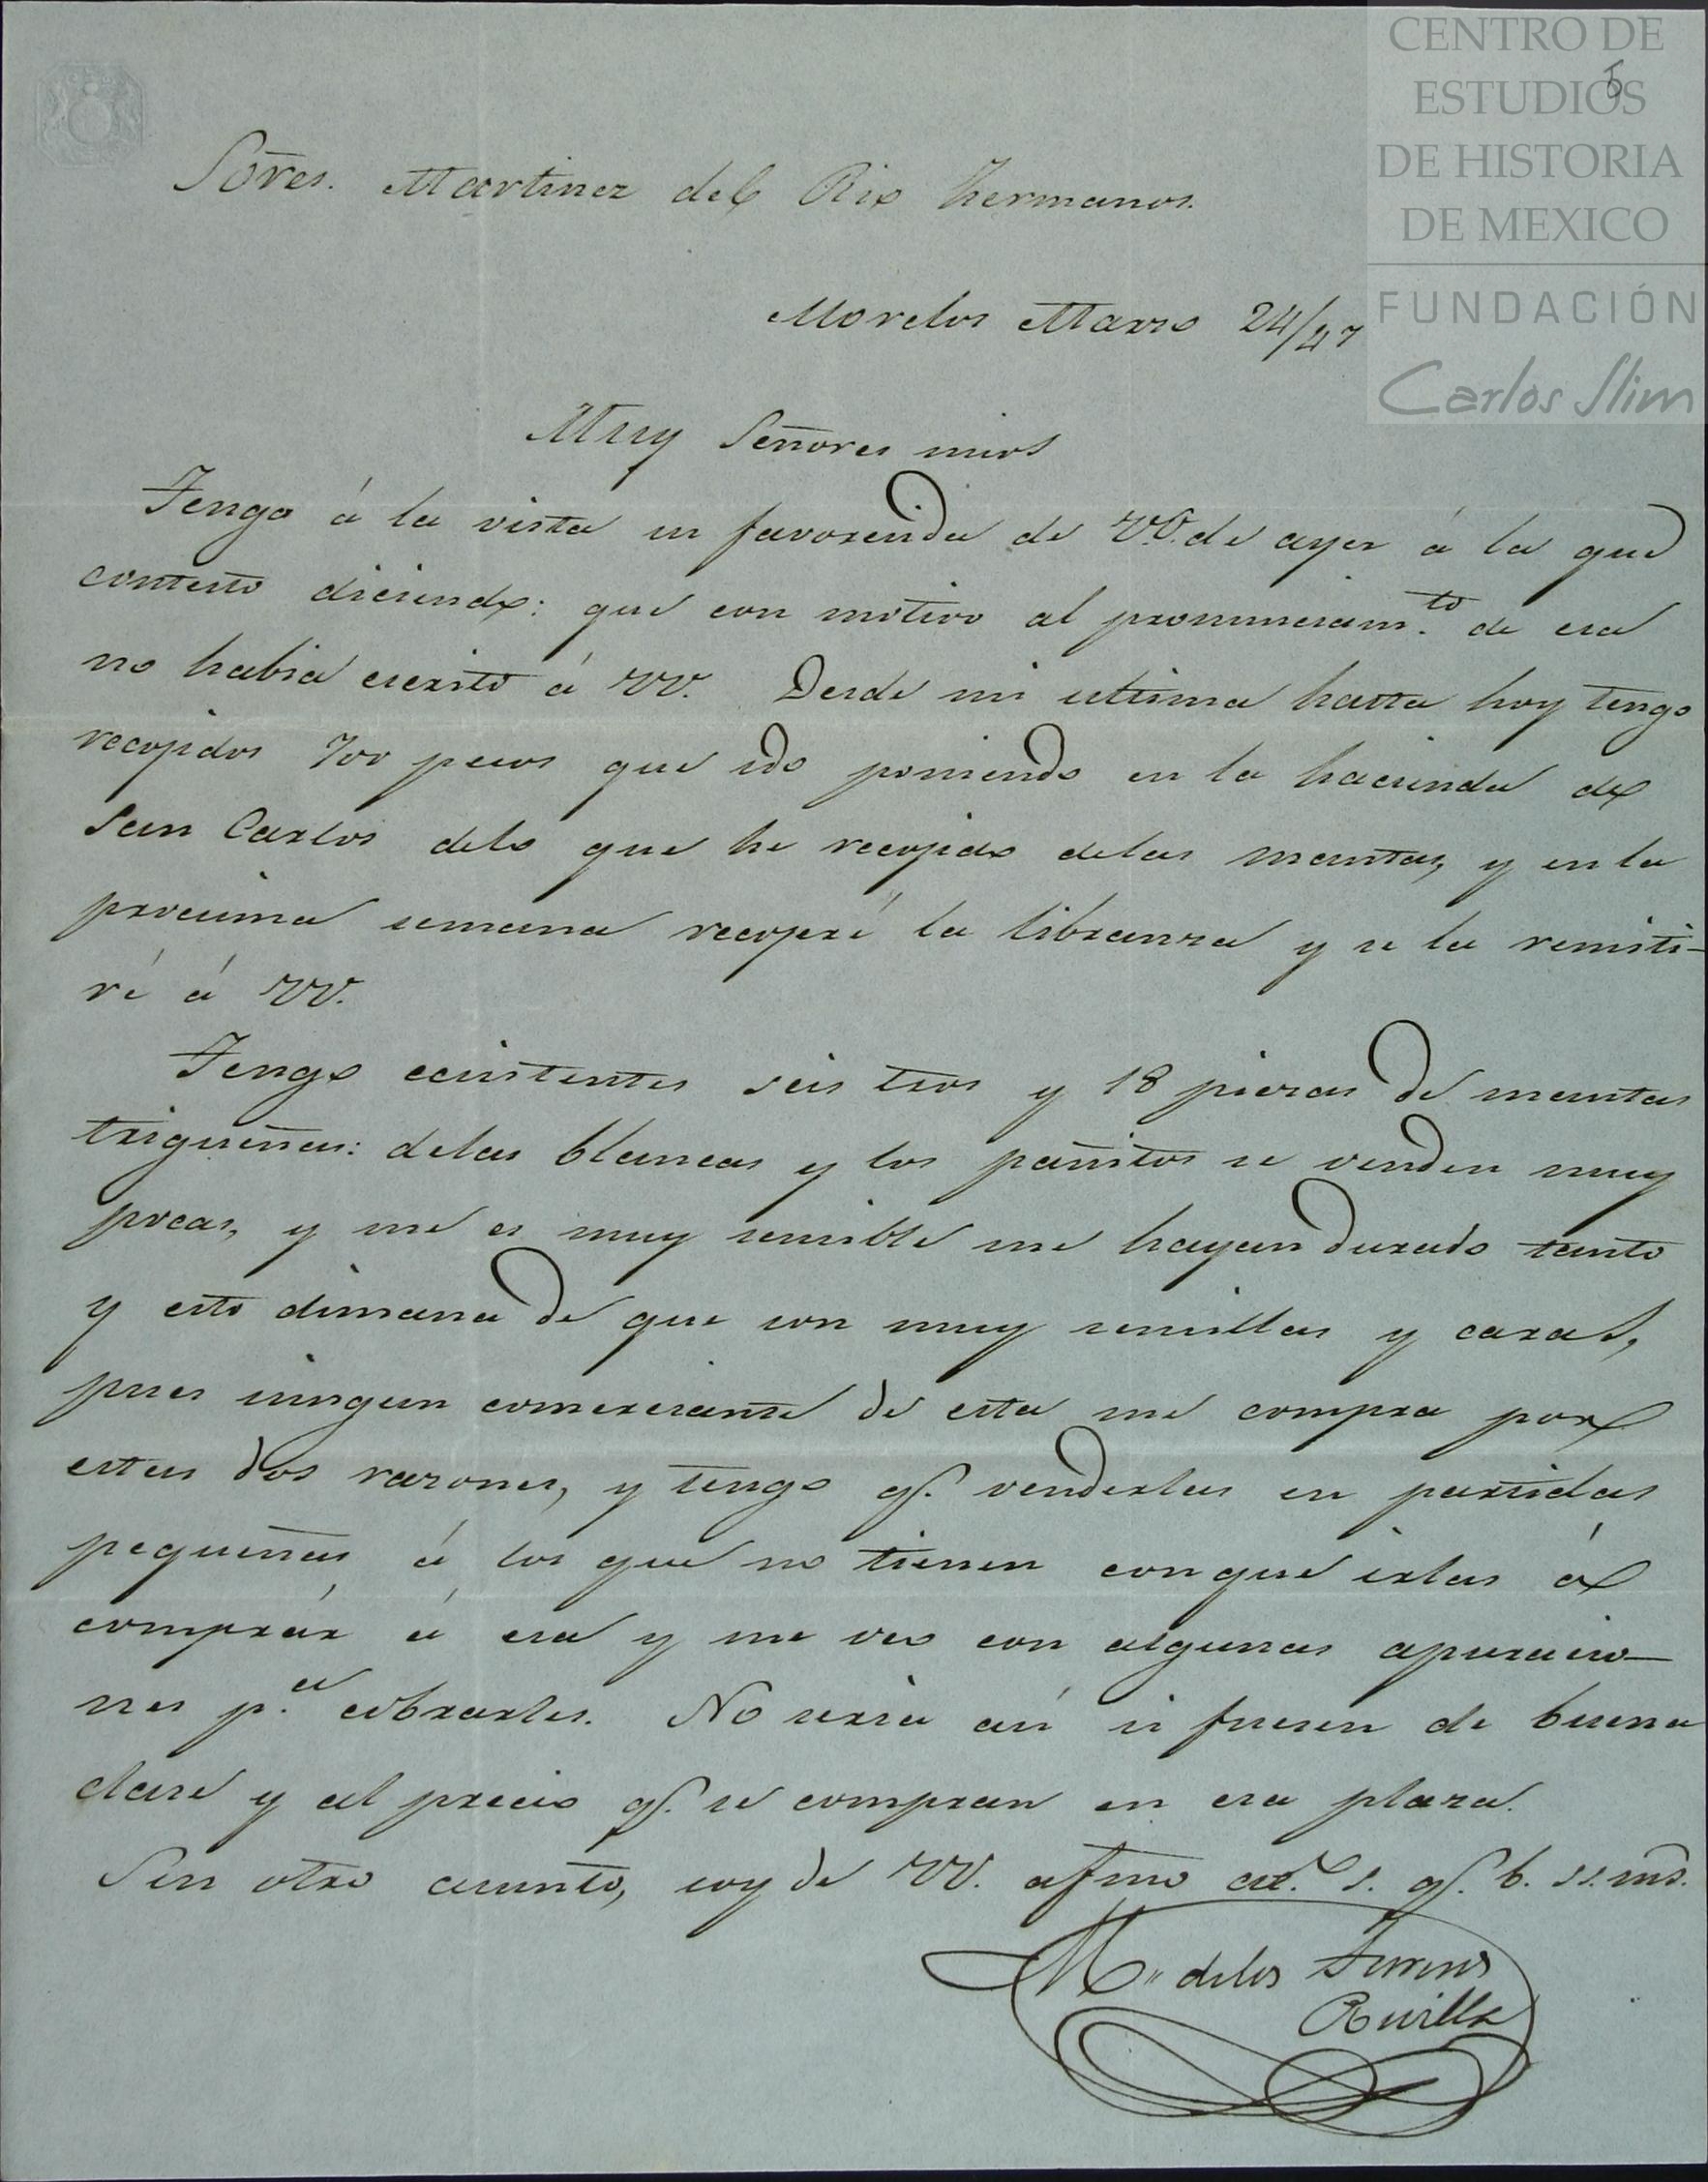 CENTRO DE
ESTUDIOS
DE HISTORIA
DE MEXICO
FUNDACIÓN
Carlos Slim
5
Sõres. Martinez del Rio Hermanos.
Morelos Marzo 24/47
Muy Señores mios
Tengo á la vista su favorecida de VV. de ayer á la que
contesto diciendo: que con motivo al pronunciam.to de esa
no habia escrito á VV. Desde mi ultima hasta hoy tengo
recojidos 700 pesos que ido poniendo en la hacienda de
San Carlos delo que he recojido delas mantas, y en la
procsima semana recojeré la libranza y se la remiti-
ré á VV.
Tengo ecsistentes seis tros y 18 piezas de mantas
trigueñas: delas blancas y los pañitos se venden muy
pocas, y me es muy sensible me hayan durado tanto
y esto dimana de que son muy sencillas y caras,
pues ningun comerciante de esta me compra por
estas dos razones, y tengo q. venderlas en partidas
pequeñas á los que no tienen conque irlas á
comprár á esa y me veo con algunas apuracio-
nes p.a cobrarles. No seria así si fuesen de buena
clase y al precio q. se compran en esa plaza.
Sin otro asunto, soy de VV. afmo at. s. q. b. ss. ms.
M. delos